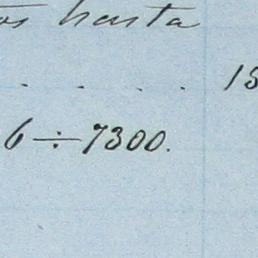 os hasta
. . . . 13
6 ÷ 7300.